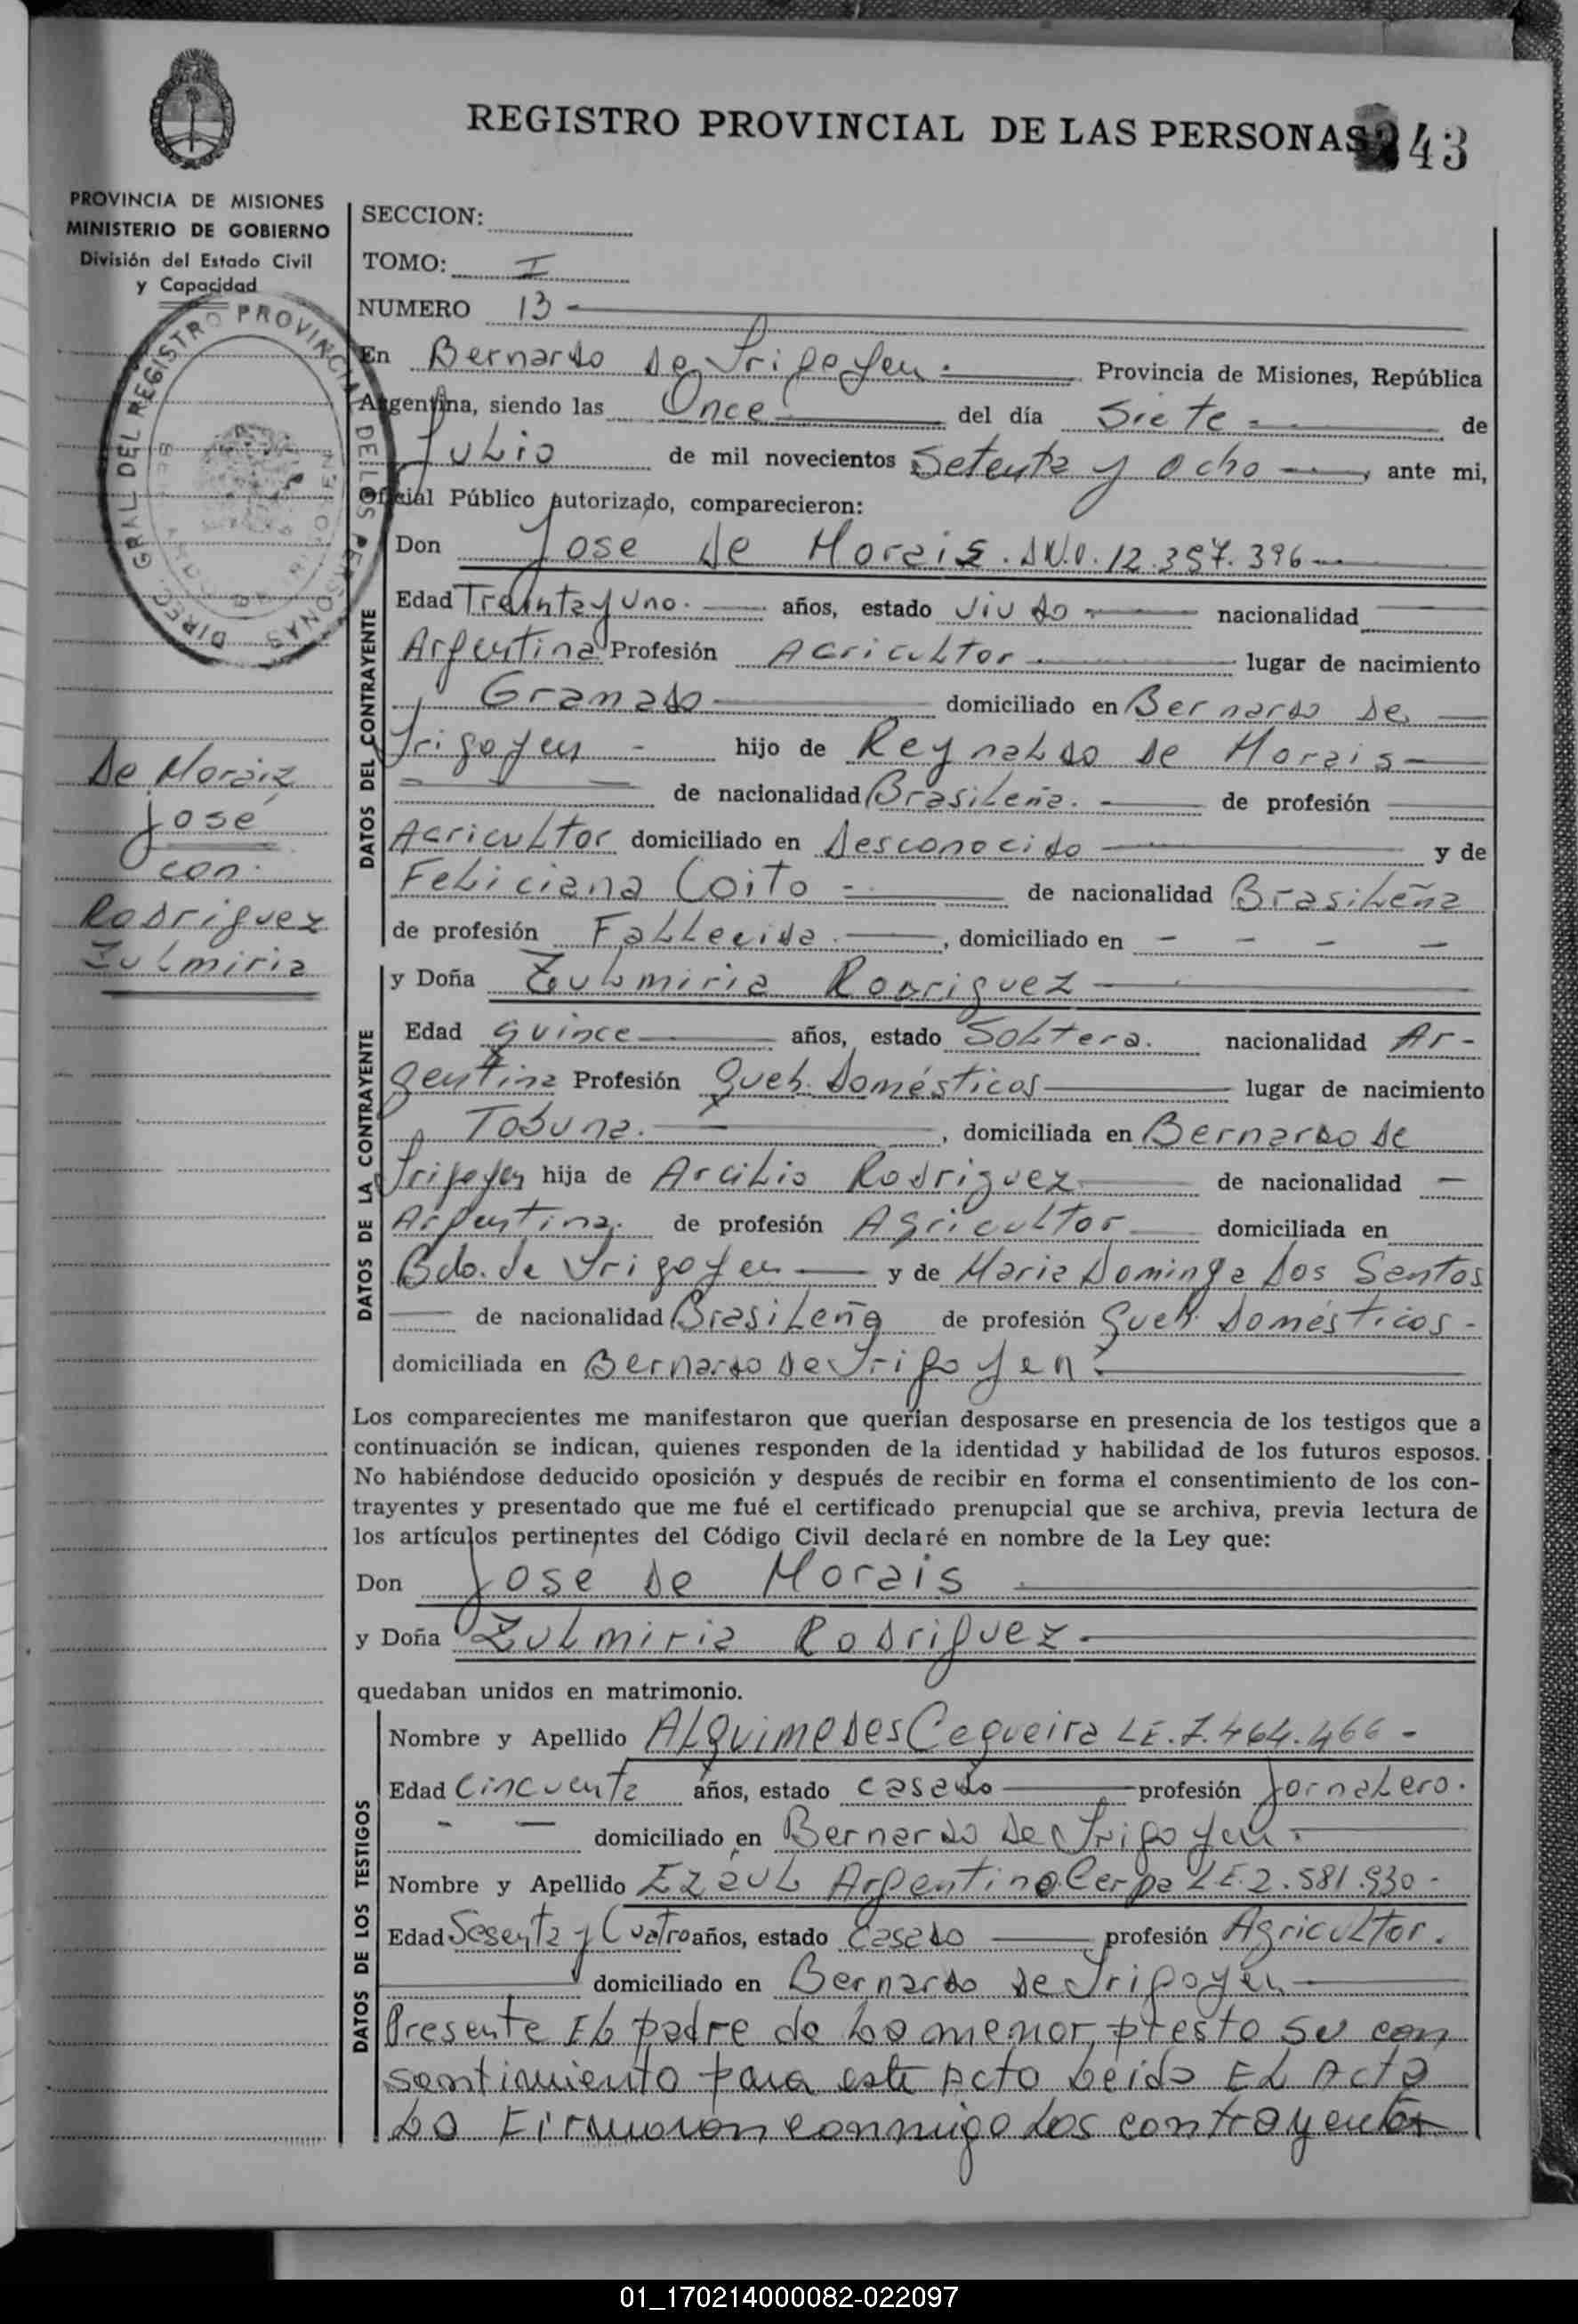 REGISTRO PROVINCIAL DE LAS PERSONAS 43
PROVINCIA DE MISIONES
MINISTERIO DE GOBIERNO
División del Estado Civil
y Capacidad
DIREC. GRAL DEL REGISTRO PROVINCIAL DE LAS PERSONAS
De Moraiz
José
con
Rodriguez
Zulmiria
SECCION:
TOMO: I
NUMERO 13
En Bernardo de Irigoyen. Provincia de Misiones, República
Argentina, siendo las Once del día Siete de
Julio de mil novecientos Setenta y Ocho, ante mi,
Oficial Público autorizado, comparecieron:
DATOS DEL CONTRAYENTE
Don Jose de Morais. D.N.I. 12.357.396
Edad Treinta y Uno. años, estado Viudo nacionalidad
Argentina Profesión Agricultor lugar de nacimiento
Granado domiciliado en Bernardo de
Irigoyen hijo de Reynaldo de Morais
de nacionalidad Brasileña. de profesión
Agricultor domiciliado en Desconocido y de
Feliciana Coito de nacionalidad Brasileña
de profesión Fallecida, domiciliado en
DATOS DE LA CONTRAYENTE
y Doña Zulmiria Rodriguez
Edad quince años, estado Soltera. nacionalidad Ar-
gentina Profesión Queh. Domésticos lugar de nacimiento
Tobuna., domiciliada en Bernardo de
Irigoyen hija de Arcilio Rodriguez de nacionalidad
Argentina. de profesión Agricultor domiciliada en
Bdo. de Irigoyen y de Maria Dominga Dos Santos
de nacionalidad Brasileña de profesión Queh. Domésticos
domiciliada en Bernardo de Irigoyen
Los comparecientes me manifestaron que querían desposarse en presencia de los testigos que a
continuación se indican, quienes responden de la identidad y habilidad de los futuros esposos.
No habiéndose deducido oposición y después de recibir en forma el consentimiento de los con-
trayentes y presentado que me fué el certificado prenupcial que se archiva, previa lectura de
los artículos pertinentes del Código Civil declaré en nombre de la Ley que:
Don Jose de Morais
y Doña Zulmiria Rodriguez
quedaban unidos en matrimonio.
DATOS DE LOS TESTIGOS
Nombre y Apellido Alquimedes Cequeira LE. 7.464.466
Edad Cincuenta años, estado casado profesión Jornalero.
domiciliado en Bernardo de Irigoyen.
Nombre y Apellido Ezául Argentino Cerpa LE. 2.581.930
Edad Sesenta y Cuatro años, estado Casado profesión Agricultor.
domiciliado en Bernardo de Irigoyen
Presente El padre de la menor, presto su con
sentimiento para este Acto Leida El Acta
La Firmaron conmigo Los contrayentes
01_170214000082-022097